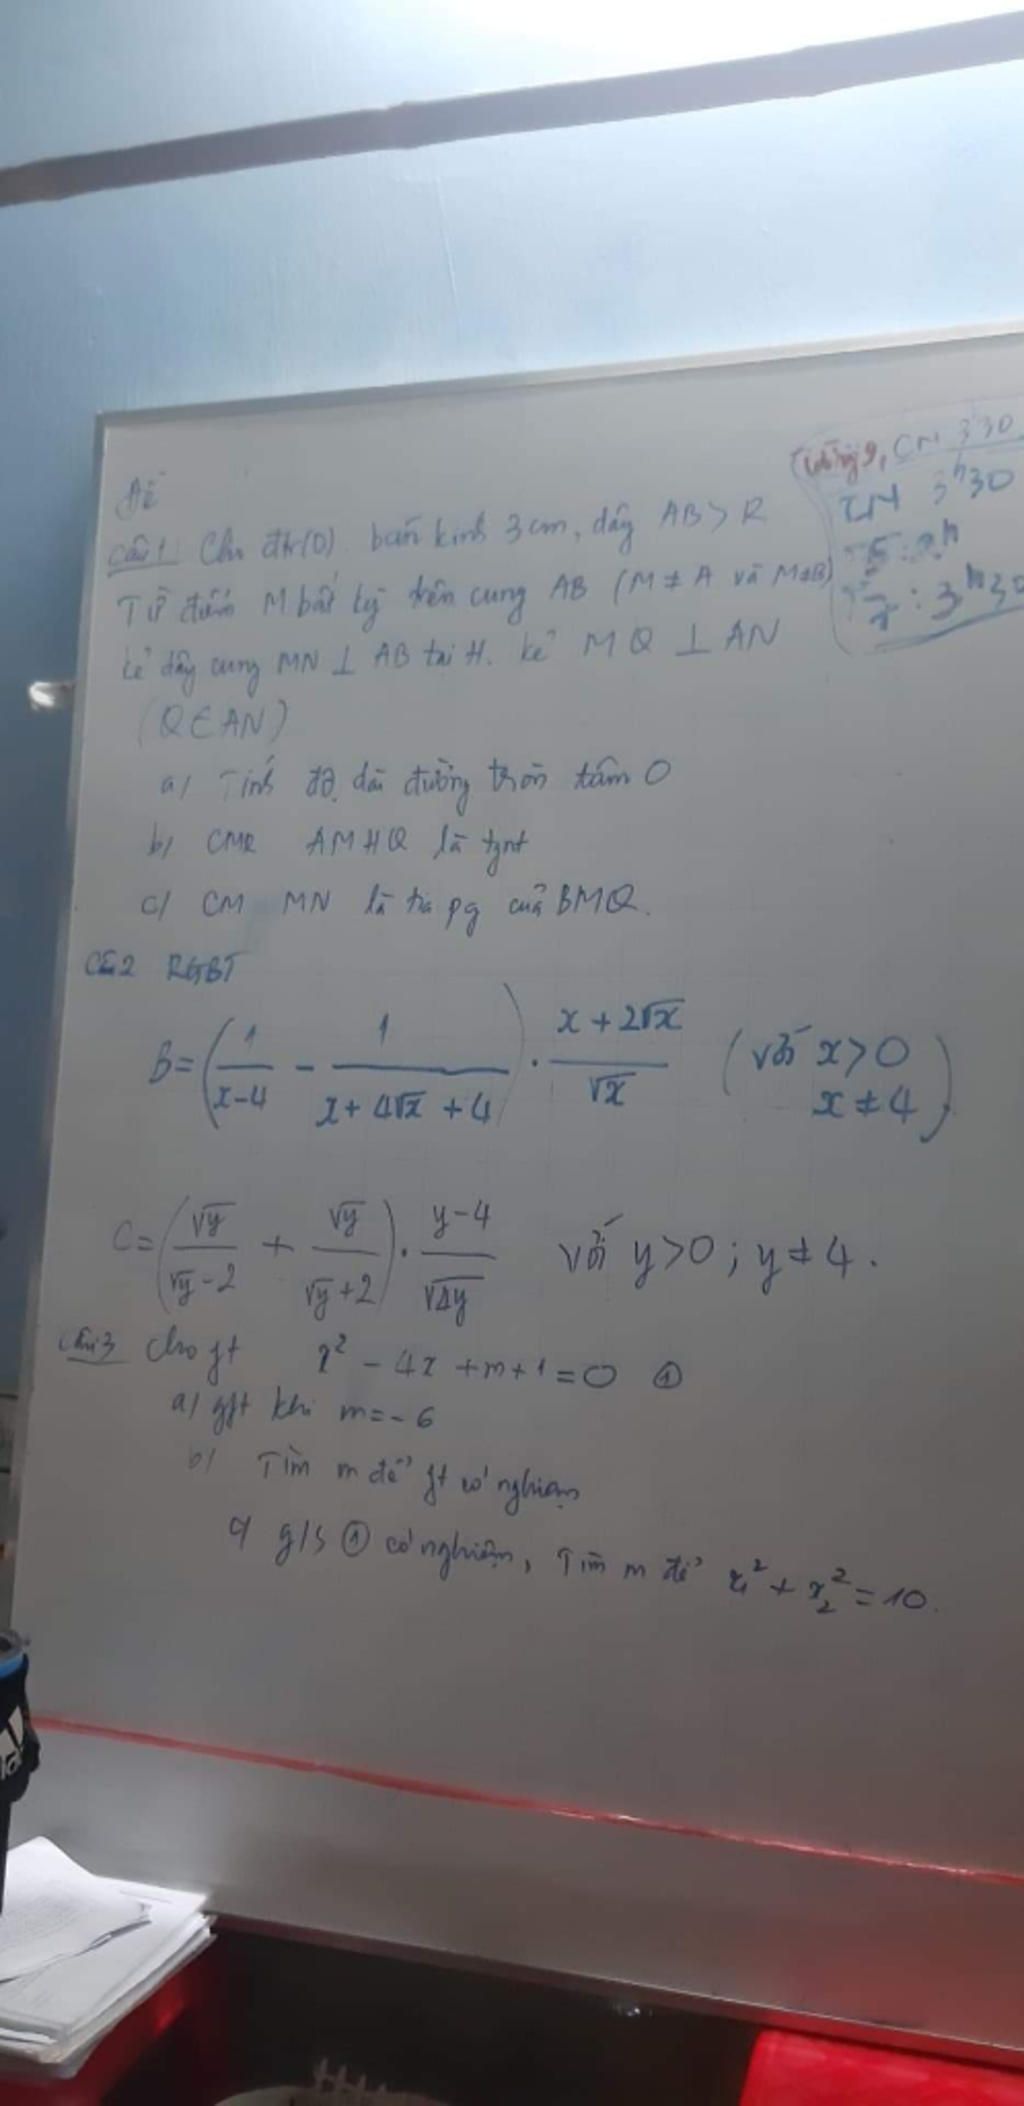 Đề
Câu 1 Cho đtr(O) bán kính 3cm, dây AB > R
Từ điểm M bất kỳ trên cung AB (M ≠ A và M≠B)
kẻ dây cung MN ⊥ AB tại H. kẻ MQ ⊥ AN
(Q ∈ AN)
a/ Tính độ dài đường tròn tâm O
b/ CMR AMHQ là tgnt
c/ CM MN là tia pg của BMQ.
Câu 2 RGBT
B = (1/(x-4) - 1/(x+4√x+4)) · (x+2√x)/√x (với x>0 x≠4)
C = (√y/(√y-2) + √y/(√y+2)) · (y-4)/√4y với y>0 ; y≠4.
Câu 3 Cho pt x² - 4x + m + 1 = 0 ①
a/ gpt khi m = -6
b/ Tìm m để pt có nghiệm
c/ g/s ① có nghiệm, Tìm m để x₁² + x₂² = 10.
CN 3 30
3h30
7 : 3h30